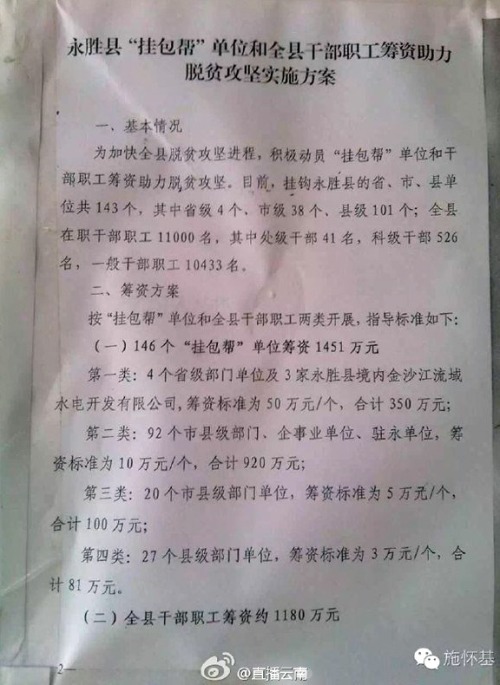 永胜县“挂包帮”单位和全县干部职工筹资助力
脱贫攻坚实施方案
一、基本情况
为加快全县脱贫攻坚进程，积极动员“挂包帮”单位和干
部职工筹资助力脱贫攻坚。目前，挂钩永胜县的省、市、县单
位共143个，其中省级4个、市级38个、县级101个；全县
在职干部职工11000名，其中处级干部41名，科级干部526
名，一般干部职工10433名。
二、筹资方案
按“挂包帮”单位和全县干部职工两类开展，指导标准如下：
（一）146个“挂包帮”单位筹资1451万元
第一类：4个省级部门单位及3家永胜县境内金沙江流域
水电开发有限公司,筹资标准为50万元/个，合计350万元；
第二类：92个市县级部门、企事业单位、驻永单位，筹
资标准为10万元/个，合计920万元；
第三类：20个市县级部门单位，筹资标准为5万元/个，
合计100万元；
第四类：27个县级部门单位，筹资标准为3万元/个，合
计81万元。
（二）全县干部职工筹资约1180万元
2
@直播云南
施怀基